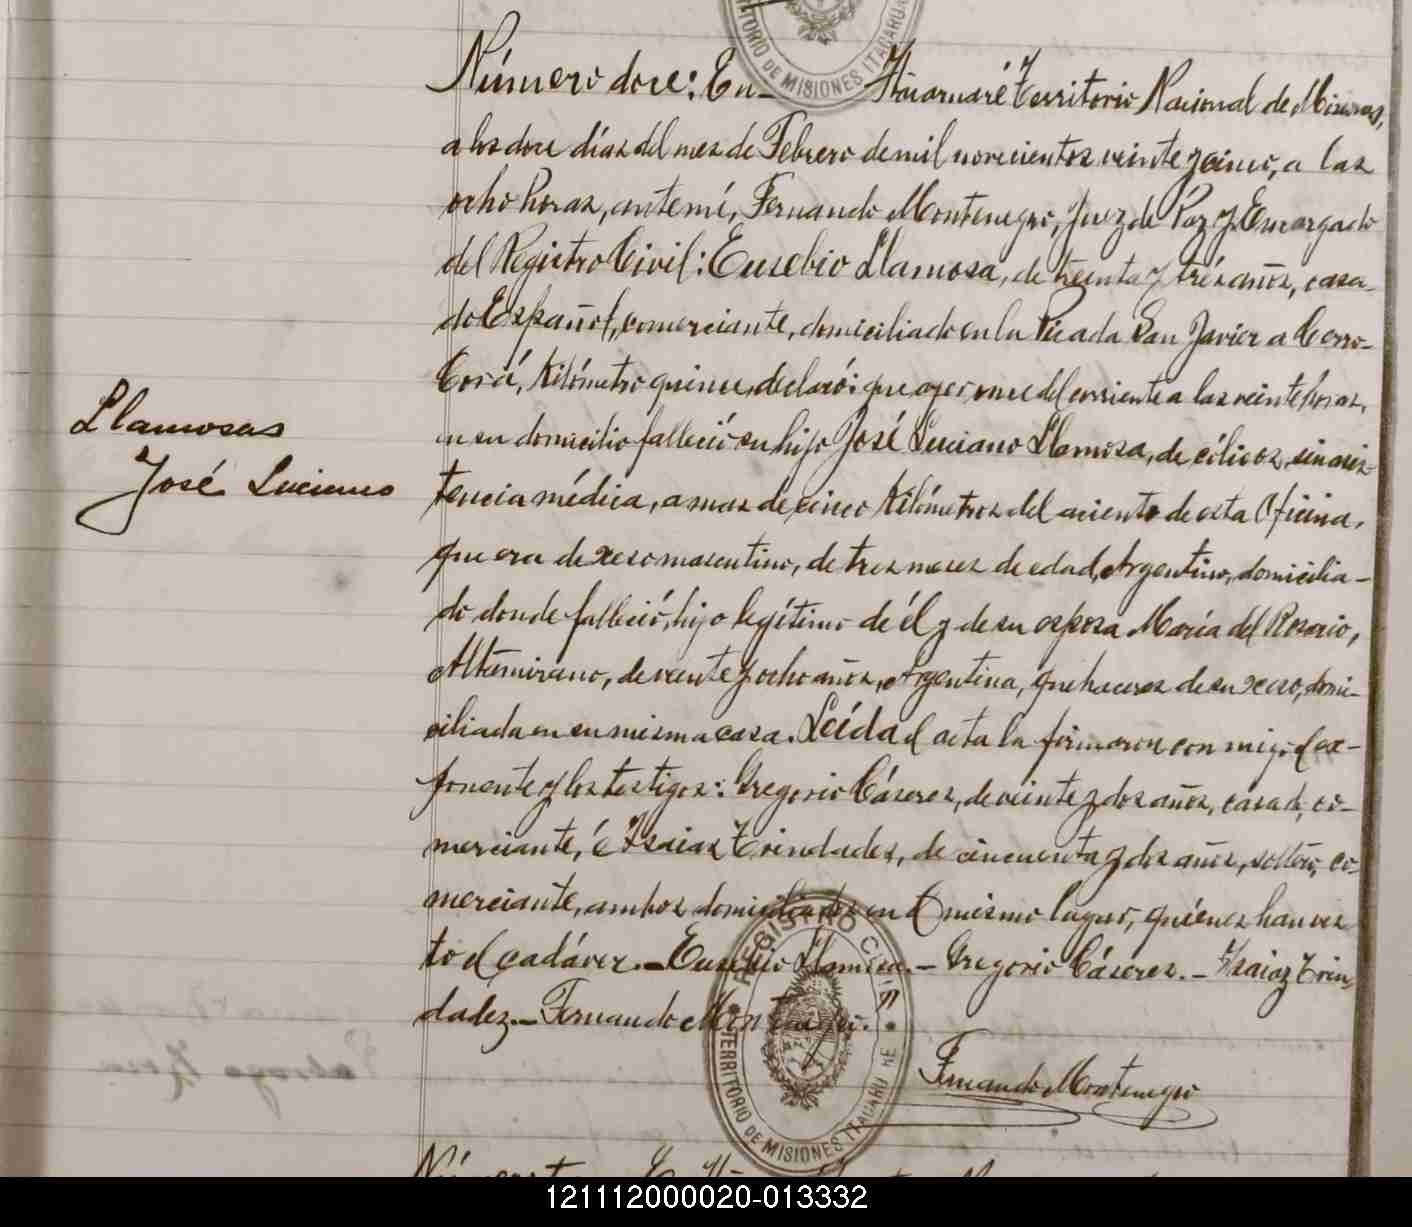 TERRITORIO DE MISIONES ITACARUA
Número doce: En Itacaruaré Territorio Nacional de Misiones,
a los doce días del mes de Febrero de mil novecientos veinte y cinco, a las
ocho horas, ante mí, Fernando Montenegro, Juez de Paz y Encargado
del Registro Civil: Eusebio Llamosa, de treinta y tres años, casa-
do Español, comerciante, domiciliado en la Picada San Javier a Cerro-
Corá, Kilómetro quince, declaró: que ayer once del corriente a las veinte horas,
en su domicilio falleció su hijo José Luciano Llamosa, de cólicos, sin asis-
Llamosas
José Luciano
tencia médica, a mas de cinco Kilómetros del aciento de esta Oficina,
que era de xeso mascutino, de tres meses de edad, Argentino, domicilia-
do donde falleció, hijo legítimo de él y de su esposa María del Rosario,
Altamirano, de veinte y ocho años, Argentina, quehaceres de su xeso, domi-
ciliada en su misma casa. Leída el acta la firmaron con migo el ex-
ponente y los testigos: Gregorio Cáseres, de veinte y dos años, casado, co-
merciante, é Isaias Trindades, de cincuenta y dos años, soltero, co-
merciante, ambos domiciliados en el mismo lugar, quiénes han vis-
to el cadáver.- Eusebio Llamosa.- Gregorio Cáseres.- Isaias Trin-
dadez.- Fernando Montenegro.
REGISTRO CIVIL
TERRITORIO DE MISIONES ITACARUARE
Fernando Montenegro
121112000020-013332